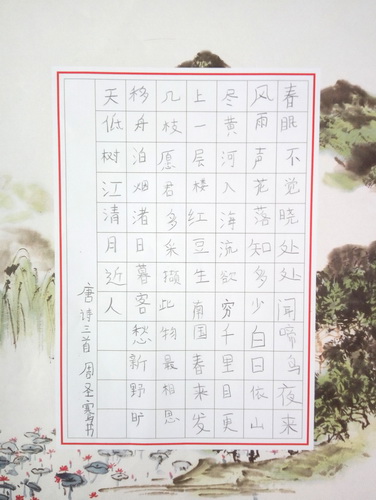 春眠不觉晓处处闻啼鸟夜来
风雨声花落知多少白日依山
尽黄河入海流欲穷千里目更
上一层楼红豆生南国春来发
几枝愿君多采撷此物最相思
移舟泊烟渚日暮客愁新野旷
天低树江清月近人
唐诗三首 周圣书